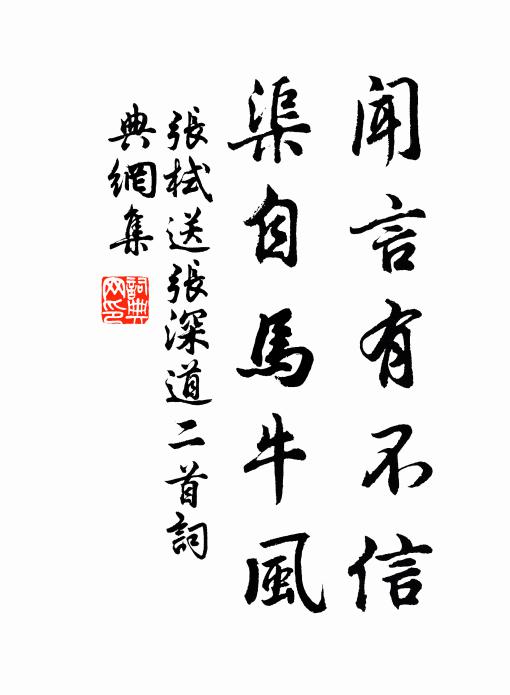 聞言有不信
渠自馬牛風
張栻送張深道二首詞
典網集
詞典
网印